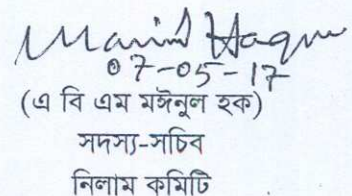 Mainul Haque
07-05-17
(এ বি এম মঈনুল হক)
সদস্য-সচিব
নিলাম কমিটি